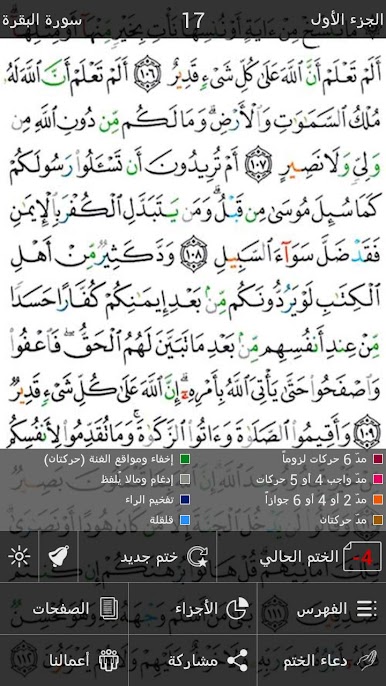 الجزء الأول 17 سورة البقرة
أَلَمْ تَعْلَمْ أَنَّ اللَّهَ عَلَىٰ كُلِّ شَيْءٍ قَدِيرٌ ١٠٦ أَلَمْ تَعْلَمْ أَنَّ اللَّهَ لَهُ
مُلْكُ السَّمَاوَاتِ وَالْأَرْضِ وَمَا لَكُم مِّن دُونِ اللَّهِ مِن
وَلِيٍّ وَلَا نَصِيرٍ ١٠٧ أَمْ تُرِيدُونَ أَن تَسْـَٔلُوا رَسُولَكُمْ
كَمَا سُئِلَ مُوسَىٰ مِن قَبْلُ وَمَن يَتَبَدَّلِ الْكُفْرَ بِالْإِيمَٰنِ
فَقَدْ ضَلَّ سَوَاءَ السَّبِيلِ ١٠٨ وَدَّ كَثِيرٌ مِّنْ أَهْلِ
الْكِتَٰبِ لَوْ يَرُدُّونَكُم مِّن بَعْدِ إِيمَٰنِكُمْ كُفَّارًا حَسَدًا
مِّنْ عِندِ أَنفُسِهِم مِّن بَعْدِ مَا تَبَيَّنَ لَهُمُ الْحَقُّ فَاعْفُوا
وَاصْفَحُوا حَتَّىٰ يَأْتِيَ اللَّهُ بِأَمْرِهِ إِنَّ اللَّهَ عَلَىٰ كُلِّ شَيْءٍ قَدِيرٌ
١٠٩ وَأَقِيمُوا الصَّلَوٰةَ وَءَاتُوا الزَّكَوٰةَ وَمَا تُقَدِّمُوا لِأَنفُسِكُم
مدّ 6 حركات لزوماً إخفاء ومواقع الغنة (حركتان)
مدّ واجب 4 أو 5 حركات إدغام ومالا يُلفظ
مدّ 2 أو 4 أو 6 جوازاً تفخيم الراء
مدّ حركتان قلقلة
-4 الختم الحالي ختم جديد
الفهرس الأجزاء الصفحات
دعاء الختم مشاركة أعمالنا